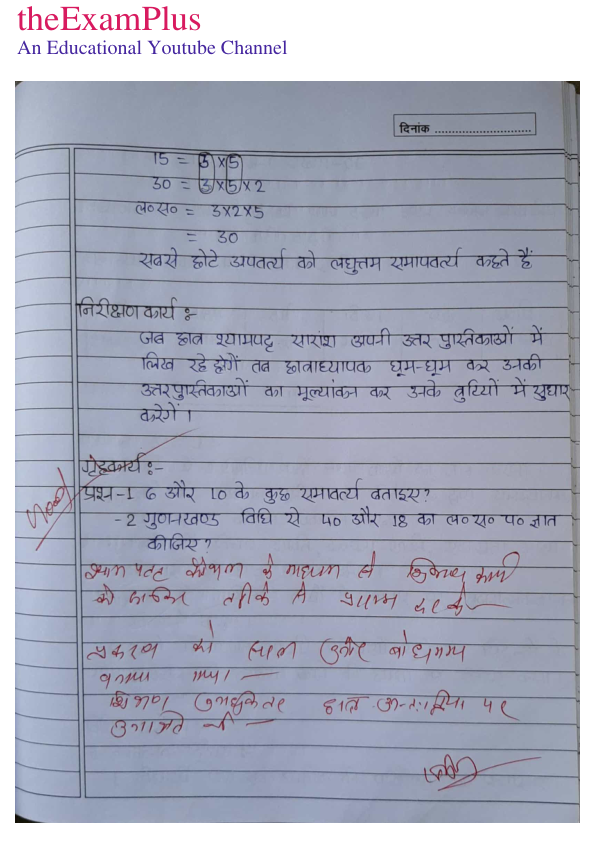 theExamPlus
An Educational Youtube Channel
दिनांक ............................
15 = 3×5
30 = 3×5×2
ल०स० = 3×2×5
= 30
सबसे छोटे अपवर्त्य को लघुत्तम समापवर्त्य कहते हैं
निरीक्षण कार्य :-
जब छात्र श्यामपट्ट सारांश अपनी उत्तर पुस्तिकाओं में
लिख रहे होगें तब छात्राध्यापक घूम-घूम कर उनकी
उत्तरपुस्तिकाओं का मूल्यांकन कर उनके त्रुटियों में सुधार
करेगें ।
गृहकार्य :-
प्रश्न-1 6 और 10 के कुछ समावर्त्य बताइए?
-2 गुणनखण्ड विधि से 40 और 18 का ल० स० प० ज्ञात
कीजिए?
श्याम पट्ट कौशल के माध्यम से शिक्षण कार्य
को तरीके से
प्रकरण को सरल और बोधगम्य
बनाया गया। —
शिक्षण छात्र अन्तःक्रिया पर